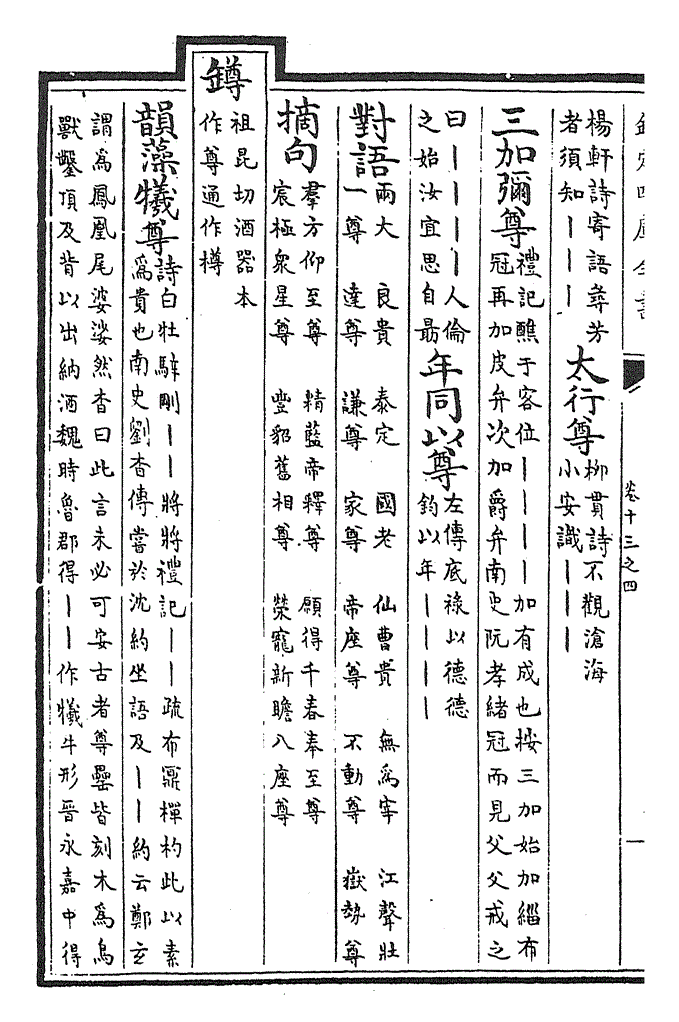 欽定四庫全書
卷十三之四
一
楊軒詩寄語尋芳
者須知丨丨丨
太行尊
柳貫詩不觀滄海
小安識丨丨丨
三加彌尊
禮記醮于客位丨丨丨丨加有成也按三加始加緇布
冠再加皮弁次加爵弁南史阮孝緒冠而見父父戒之
曰丨丨丨丨人倫
之始汝宜思自勗
年同以尊
左傳底祿以德德
鈞以年丨丨丨丨
對語
兩大 良貴 泰定 國老 仙曹貴 無為宰 江聲壯
一尊 達尊 謙尊 家尊 帝座尊 不動尊 嶽勢尊
摘句
羣方仰至尊 精藍帝釋尊 願得千春奉至尊
宸極衆星尊 豐貂舊相尊 榮寵新瞻八座尊
罇
祖昆切酒器本
作尊通作樽
韻藻犧尊
詩白牡騂剛丨丨將將禮記丨丨疏布鼏樿杓此以素
為貴也南史劉杳傳嘗於沈約坐語及丨丨約云鄭玄
謂為鳳凰尾婆娑然杳曰此言未必可安古者尊罍皆刻木為鳥
獸鑿頂及背以出納酒魏時魯郡得丨丨作犧牛形晉永嘉中得